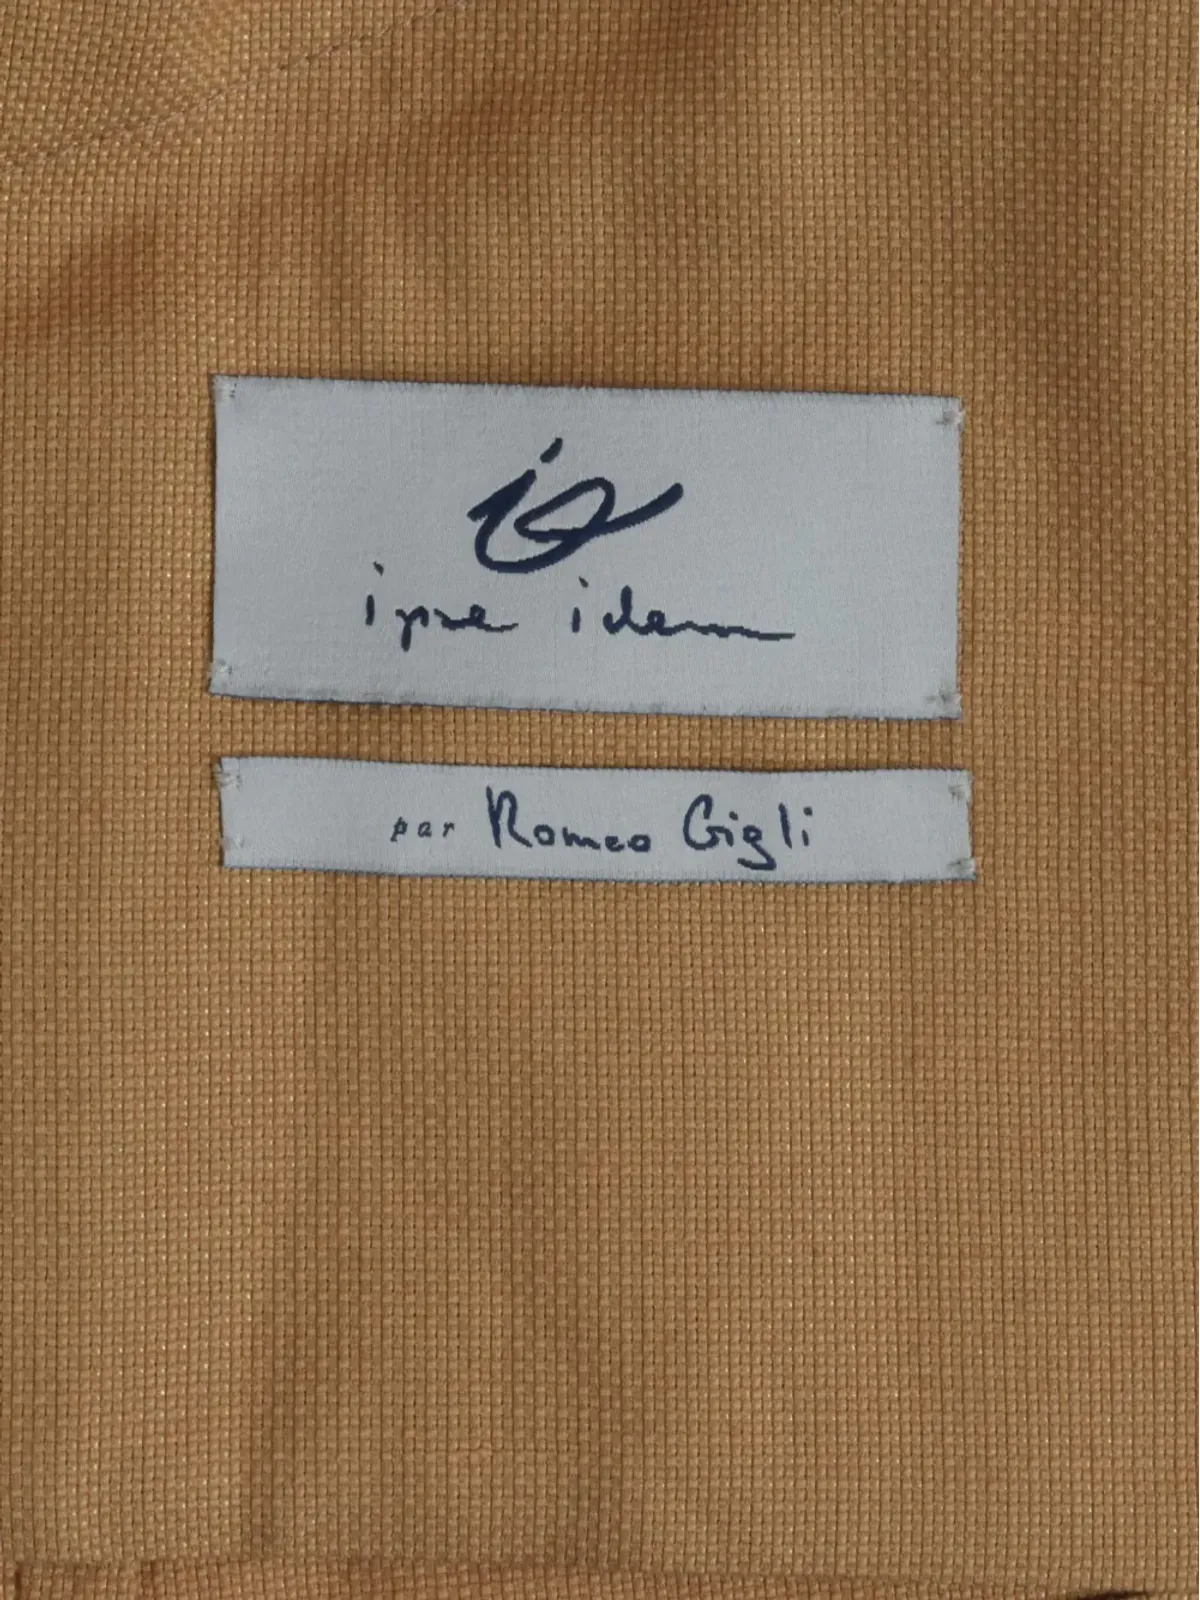 ipse idem
par Romeo Gigli